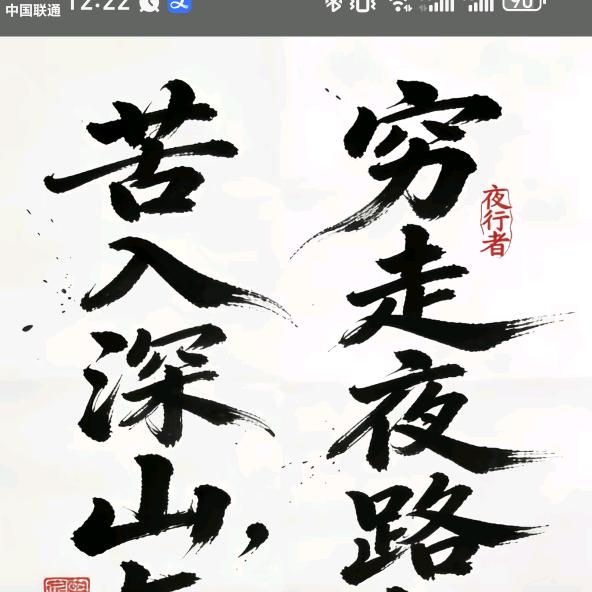 中国联通 12:22
90
穷走夜路
夜行者
苦入深山，